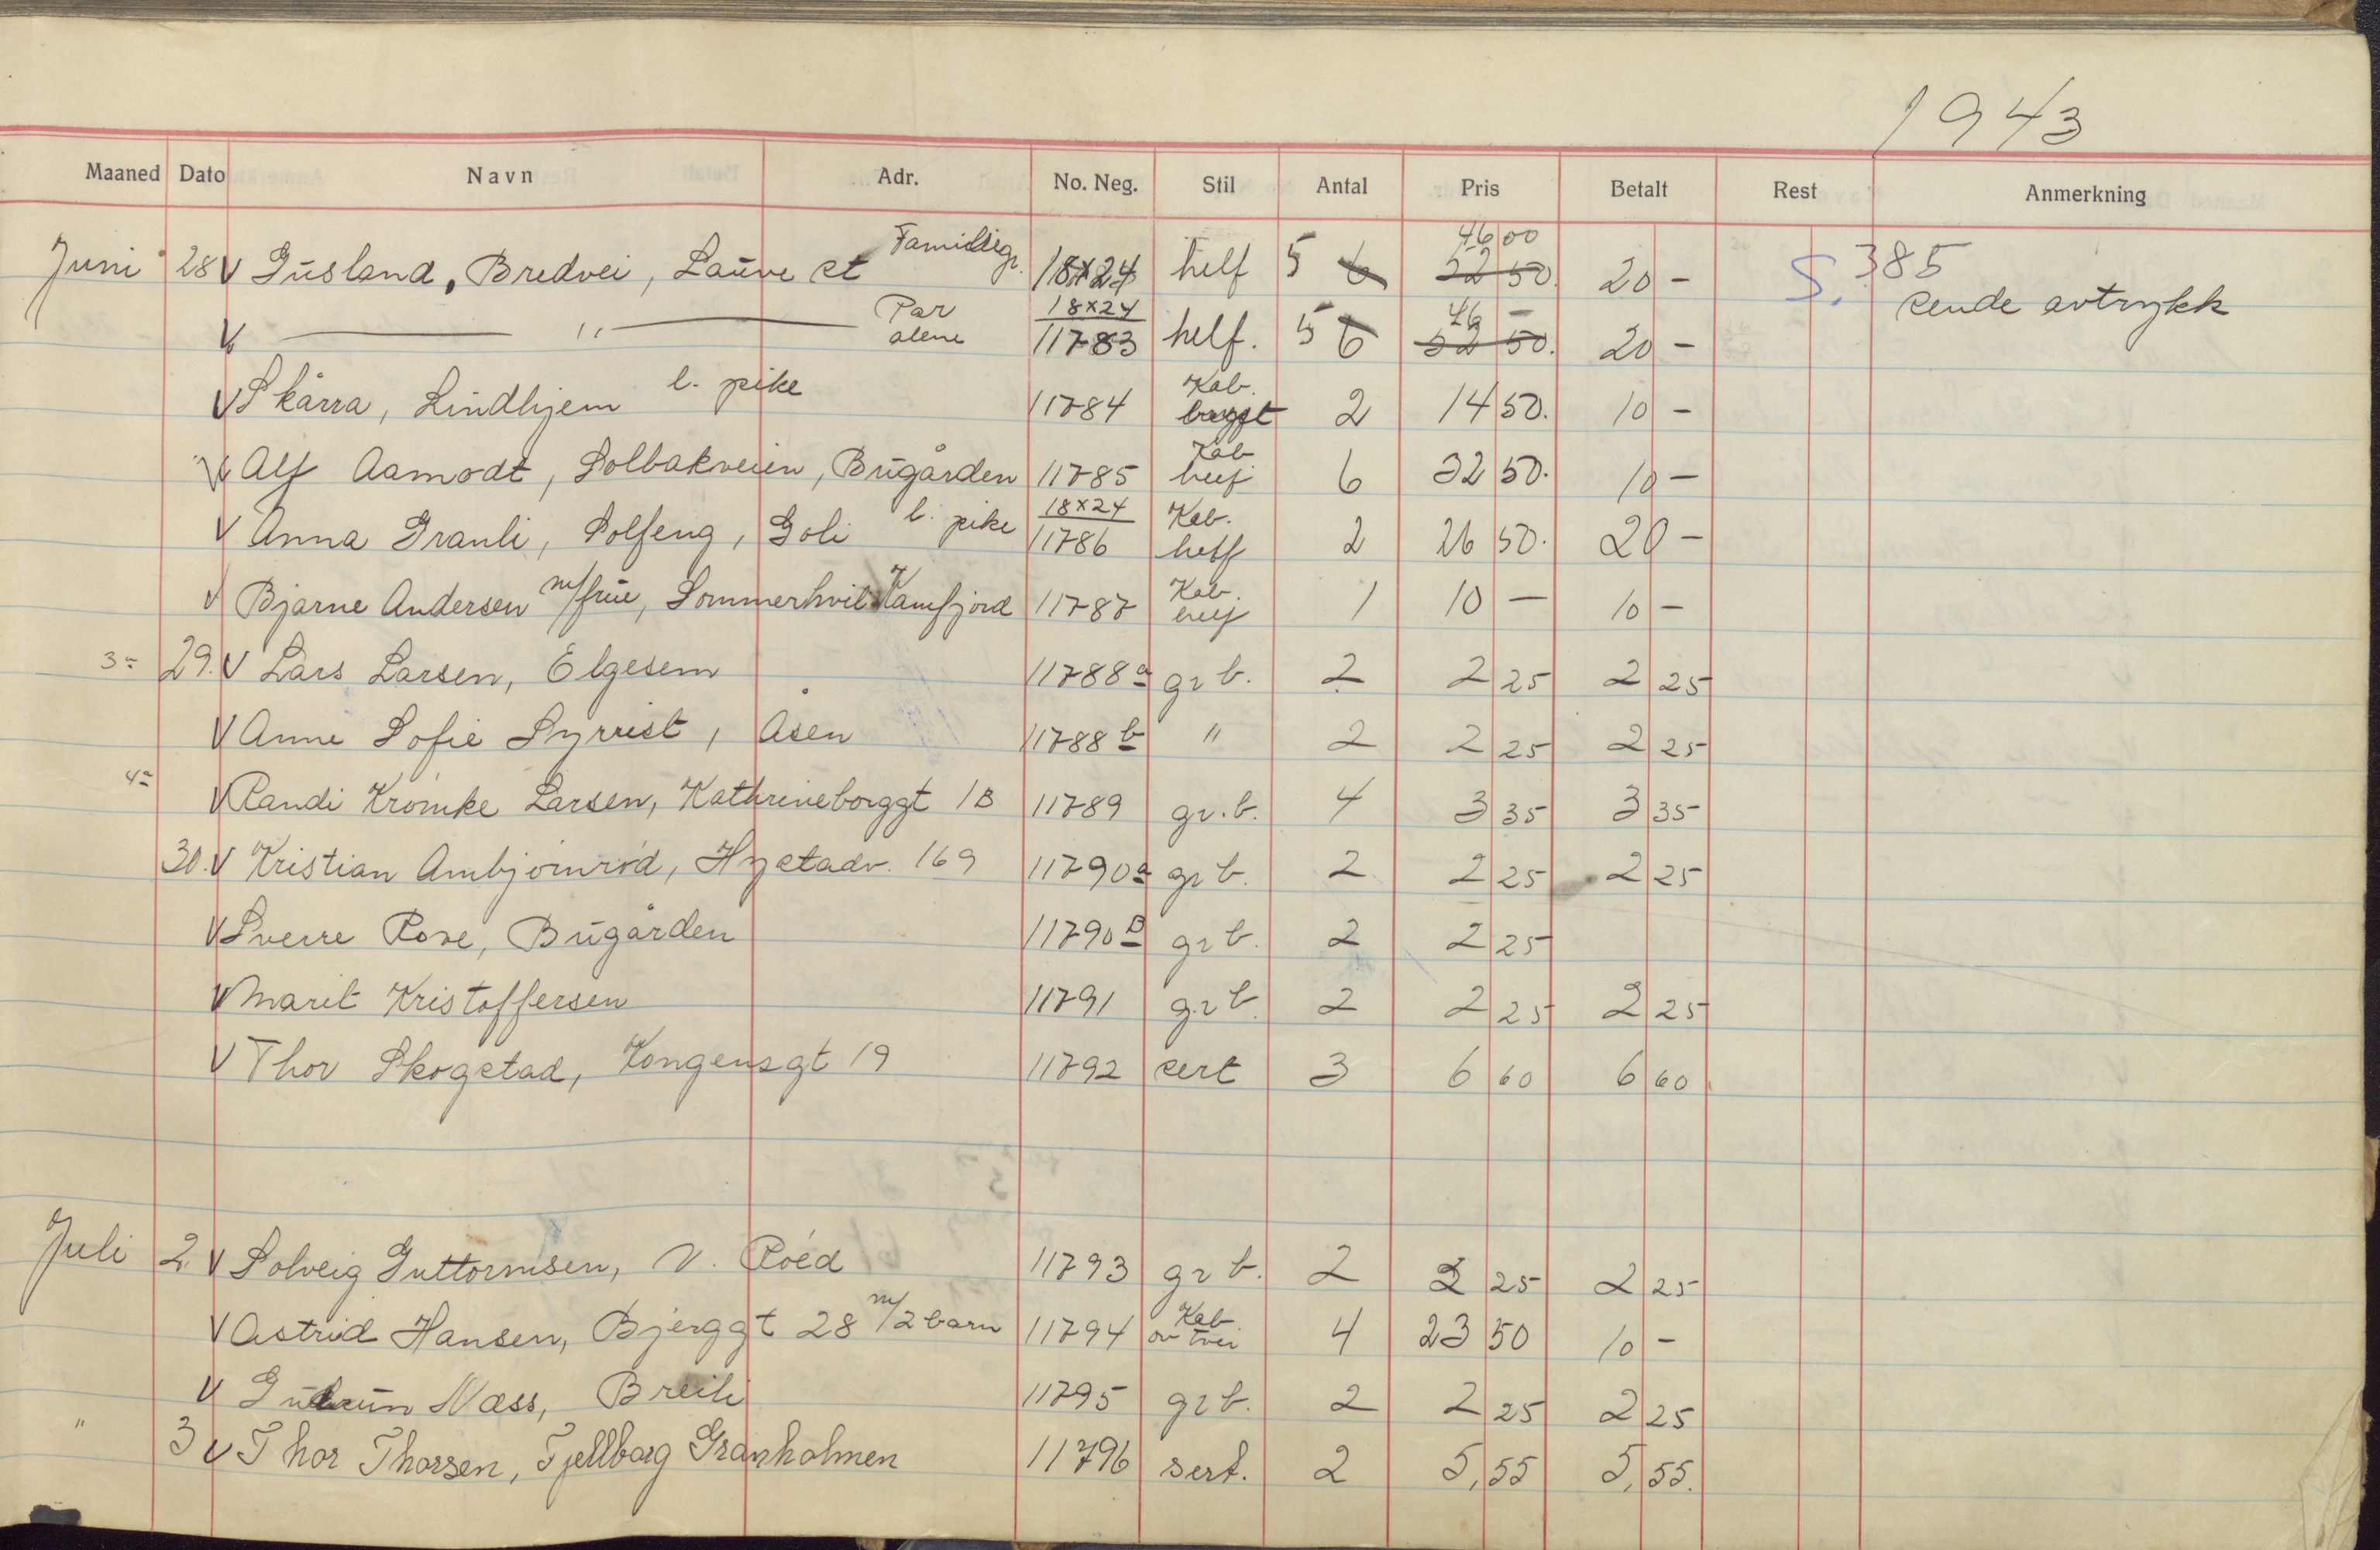 1943
Maaned Dato Navn Adr. No. Neg. Stil Antal Pris Betalt Rest Anmerkning
Juni 28 V Gusland, Bredvei, Lauve st Familiegr. 18x24 helf 5 6 46 00 52 50. 20 - S. 385 sende avtrykk
V — " — Par alene 18x24 11783 helf. 5 6 46 - 52 50. 20 -
V Skårra, Lindhjem l. pike 11784 Kab. brygst 2 14 50. 10 -
V Alf Aamodt, Solbakveien, Bugården 11785 Kab helf 6 32 50. 10 -
V Anna Granli, Solfeng, Goli l. pike 18x24 11786 Kab. helf 2 26 50. 20 -
V Bjarne Andersen m/frue, Sommerhvil Kamfjord 11787 Kab. helf 1 10 - 10 -
3- 29. V Lars Larsen, Elgesem 11788a gr b. 2 2 25 2 25
V Anne Sofie Syrrist, Åsen 11788b " 2 2 25 2 25
4- V Randi Krömke Larsen, Kathrineborggt 1B 11789 gr. b. 4 3 35 3 35
30. V Kristian Ambjørnrød, Hystadv. 169 11790a gr b. 2 2 25 2 25
V Sverre Rove, Bugården 11790B gr b. 2 2 25
V Marit Kristoffersen 11791 gr b. 2 2 25 2 25
V Thor Skogstad, Kongensgt 19 11792 sert 3 6 60 6 60
Juli 2 V Solveig Guttormsen, N. Roéd 11793 gr b. 2 2 25 2 25
V Astrid Hansen, Bjerggt 28 m/2 barn 11794 Kab 4 23 50 10 -
V Gudrun Næss, Breili 11795 gr b. 2 2 25 2 25
" 3 V Thor Thorsen, Fjellborg Granholmen 11796 sert. 2 5,55 5,55.